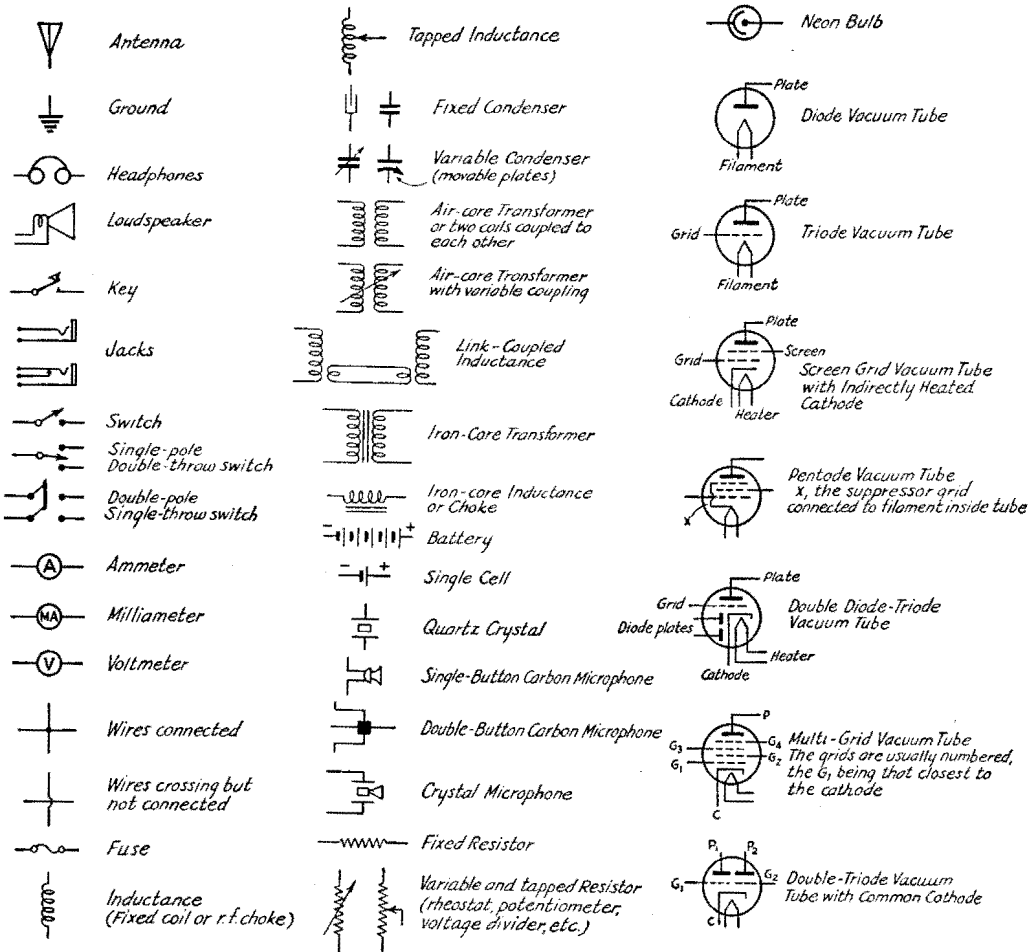 Antenna
Ground
Headphones
Loudspeaker
Key
Jacks
Switch
Single-pole
Double-throw switch
Double-pole
Single-throw switch
A
Ammeter
MA
Milliameter
V
Voltmeter
Wires connected
Wires crossing but
not connected
Fuse
Inductance
(Fixed coil or r.f. choke)
Tapped Inductance
Fixed Condenser
Variable Condenser
(movable plates)
Air-core Transformer
or two coils coupled to
each other
Air-core Transformer
with variable coupling
Link-Coupled
Inductance
Iron-Core Transformer
Iron-core Inductance
or Choke
− +
Battery
− +
Single Cell
Quartz Crystal
Single-Button Carbon Microphone
Double-Button Carbon Microphone
Crystal Microphone
Fixed Resistor
Variable and tapped Resistor
(rheostat, potentiometer,
voltage divider, etc.)
Neon Bulb
Plate
Diode Vacuum Tube
Filament
Plate
Grid
Triode Vacuum Tube
Filament
Plate
Screen
Grid
Screen Grid Vacuum Tube
with Indirectly Heated
Cathode
Cathode
Heater
Pentode Vacuum Tube
X, the suppressor grid
connected to filament inside tube
X
Plate
Grid
Double Diode-Triode
Vacuum Tube
Diode plates
Heater
Cathode
P
G4
G3
G2
G1
C
Multi-Grid Vacuum Tube
The grids are usually numbered,
the G1 being that closest to
the cathode
P1 P2
G1
G2
C
Double-Triode Vacuum
Tube with Common Cathode